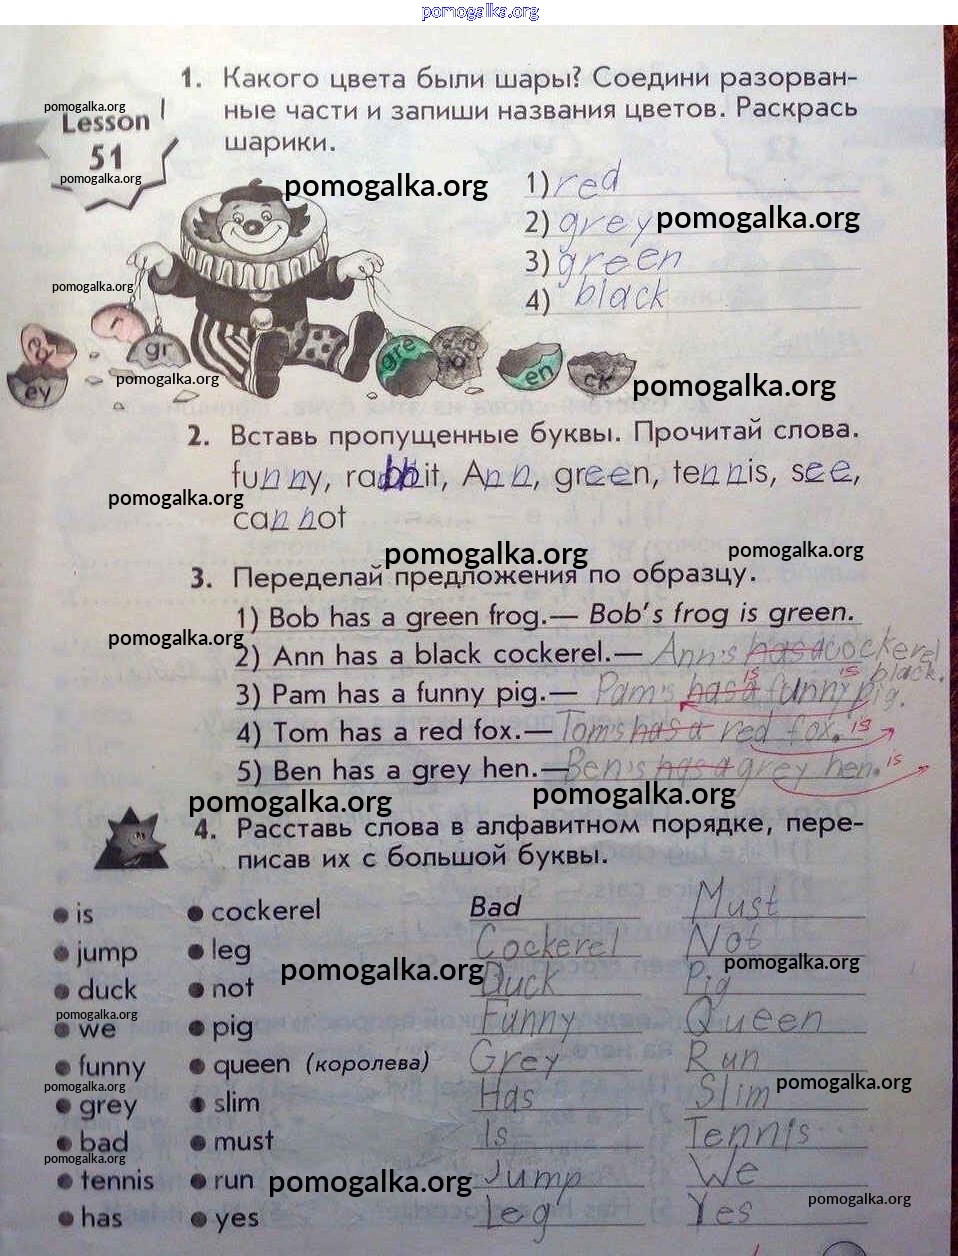 pomogalka.org
1. Какого цвета были шары? Соедини разорван-
ные части и запиши названия цветов. Раскрась
шарики.
pomogalka.org
Lesson
51
pomogalka.org
pomogalka.org
1) red
2) grey pomogalka.org
3) green
4) black
pomogalka.org
r
gr
gre
ey
en
ck
pomogalka.org
pomogalka.org
2. Вставь пропущенные буквы. Прочитай слова.
funny, rabbit, Ann, green, tennis, see,
pomogalka.org
cannot
pomogalka.org
pomogalka.org
3. Переделай предложения по образцу.
1) Bob has a green frog.— Bob's frog is green.
pomogalka.org
2) Ann has a black cockerel.— Ann's has a cockerel
is black.
3) Pam has a funny pig.— Pam's has a is funny pig.
4) Tom has a red fox.— Tom's has a red fox. is
5) Ben has a grey hen.— Ben's has a grey hen. is
pomogalka.org
pomogalka.org
4. Расставь слова в алфавитном порядке, пере-
писав их с большой буквы.
is cockerel Bad Must
jump leg Cockerel Not
pomogalka.org
pomogalka.org
duck not Duck Pig
pomogalka.org
we pig Funny Queen
funny queen (королева) Grey Run
pomogalka.org
pomogalka.org
grey slim Has Slim
bad must Is Tennis
pomogalka.org
tennis run Jump We
pomogalka.org
pomogalka.org
has yes Leg Yes